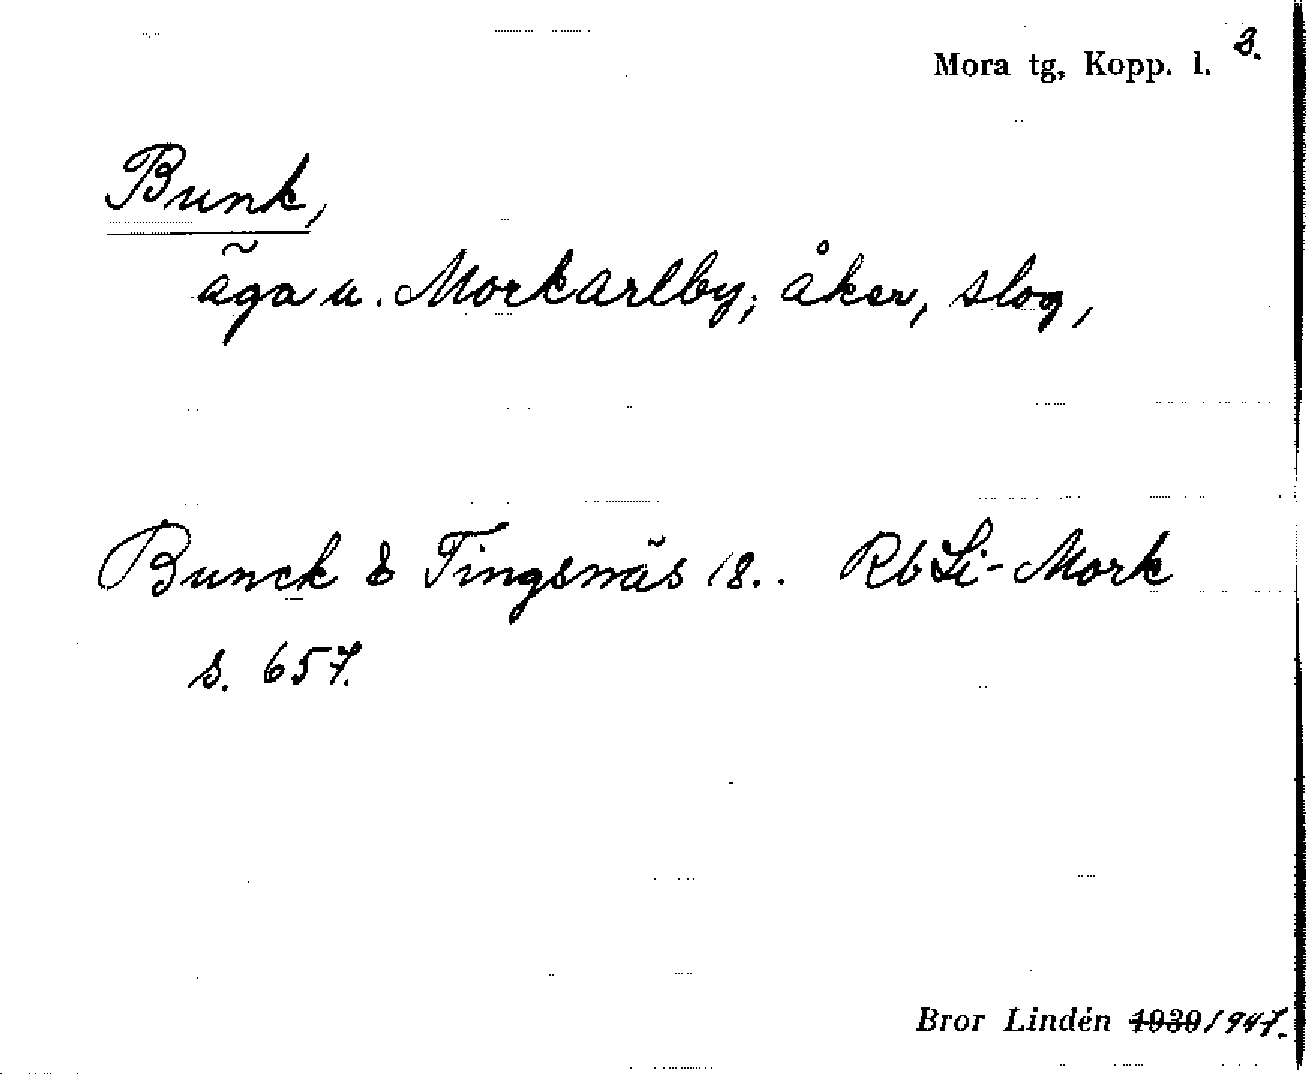 Mora tg, Kopp. l. 3.
Bunk,
äga u. Morkarlby; åker, slog,
Bunck & Tingsnäs 18.. Rb Li-Mork
s. 657.
Bror Lindén 1939 1947.